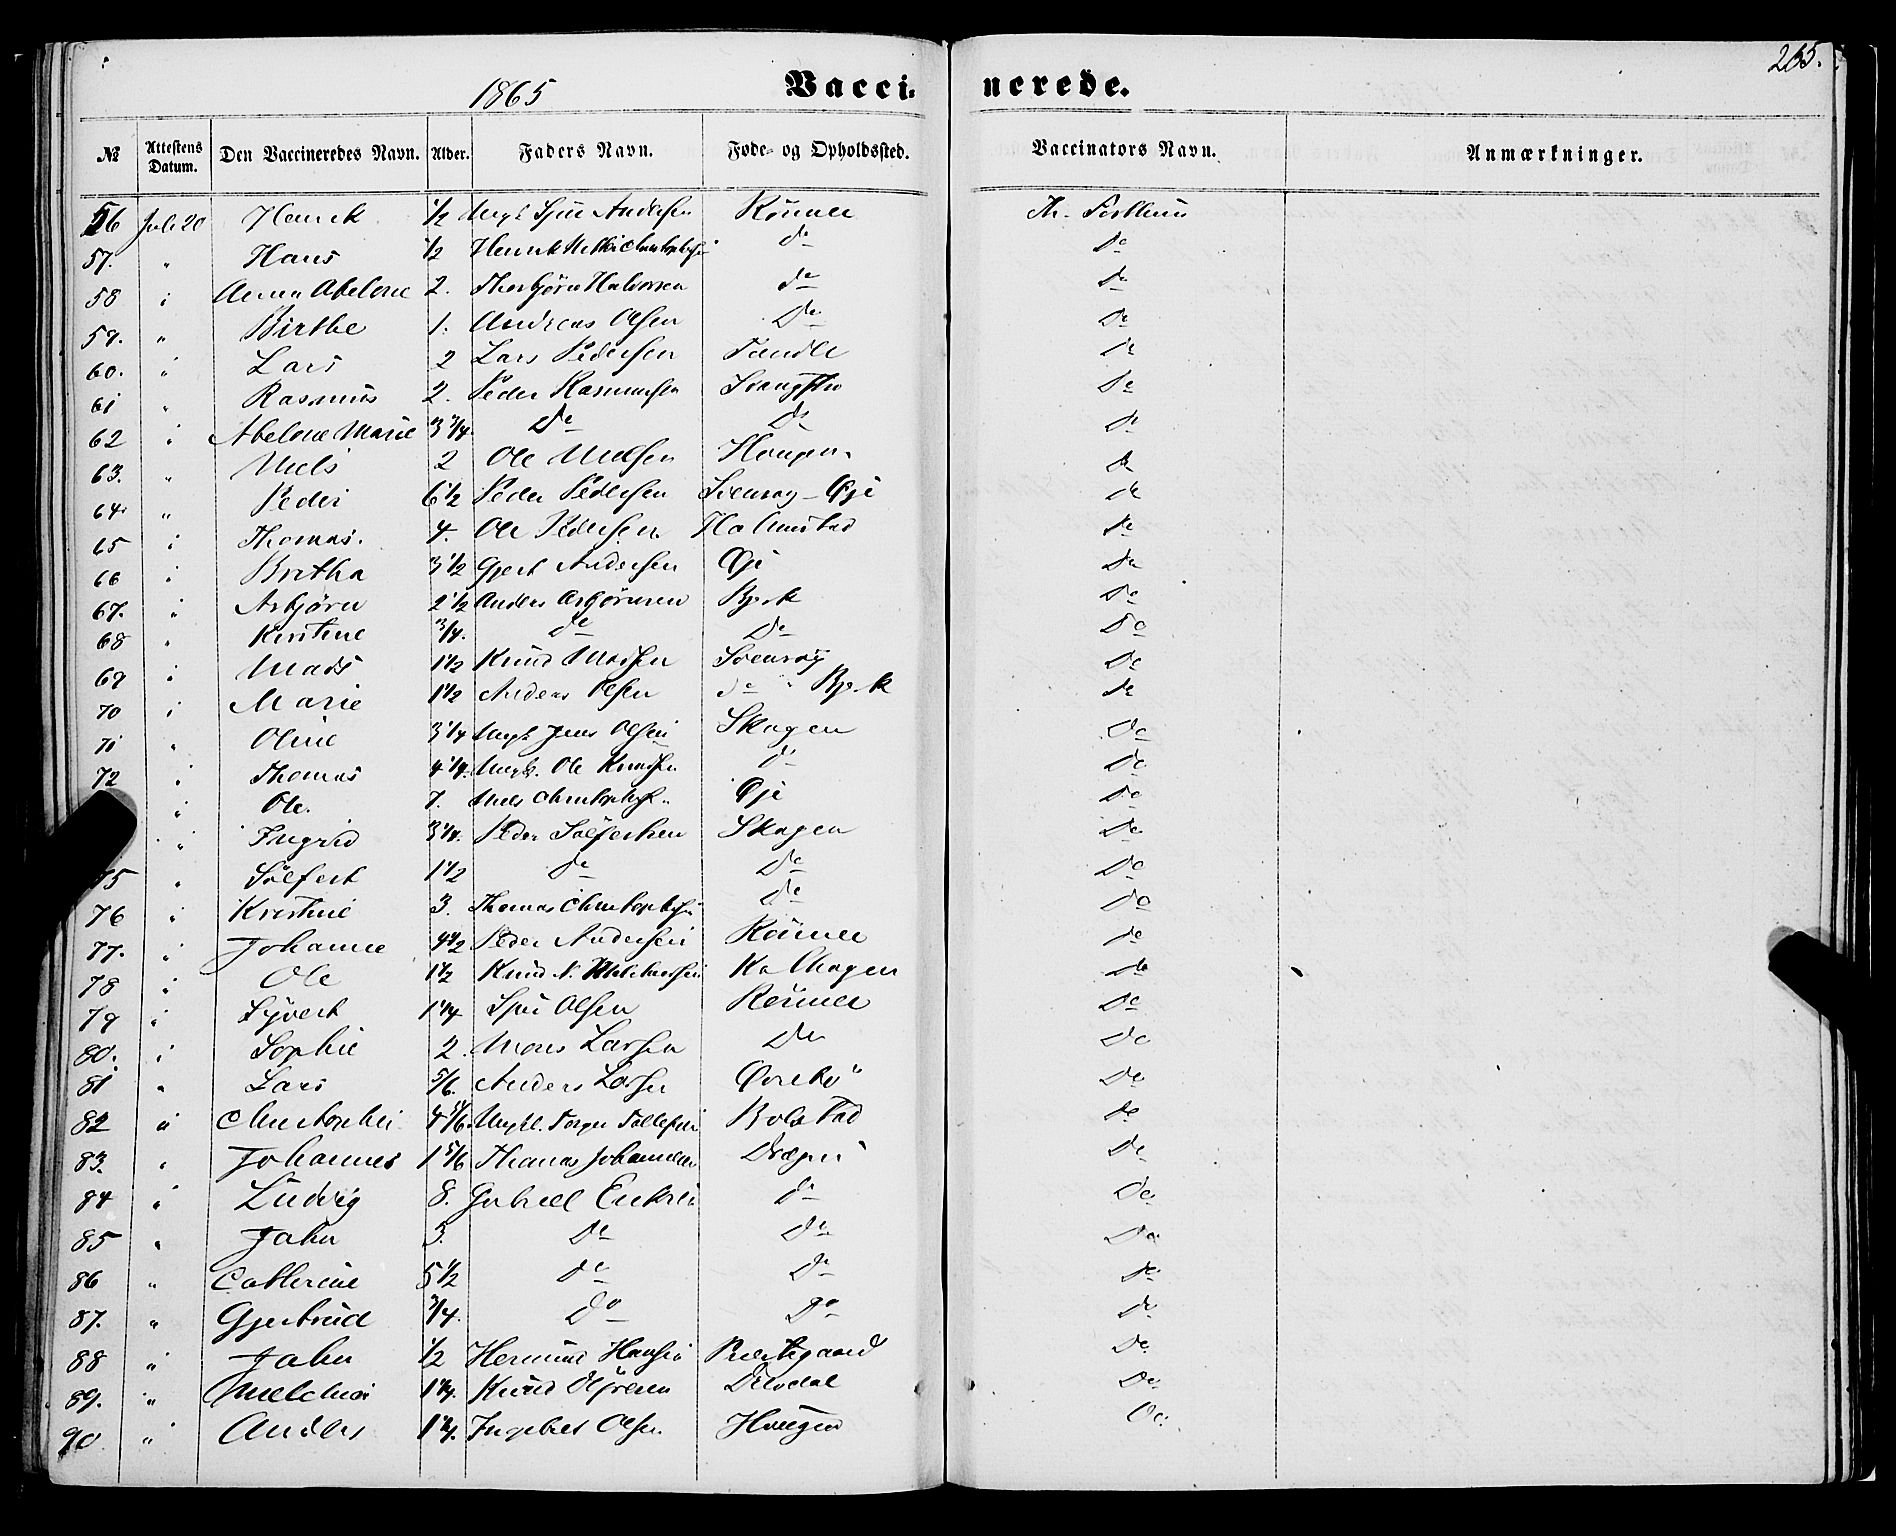 265.
1865 Vaccinerede.
№ Attestens Datum. Den Vaccineredes Navn. Alder. Faders Navn. Føde- og Opholdssted. Vaccinators Navn. Anmærkninger.
56 Juli 20 Henrik 1/2 Ungk. Andersen
57. " Hans 1/2 Henrik do Do
58 " Anna Abelone 2. Thorbjørn Halvorsen do Do
59. " Birthe 1. Andreas Olsen Do Do
60. " Lars 2 Lars Pedersen Do
61 " Rasmus 2. Peder Rasmussen Do
62 " Abelone Marie 3 1/4 Do Do Do
63. " Niels 2 Ole Nielsen Haugen Do
64. " Peder 6 1/2 Peder Pedersen Do
65 " Thomas. 4. Ole Pedersen Holmstad Do
66 " Bretha 3 1/2 Gjert Andersen Øje Do
67. " Asbjørn 2 1/2 Anders Asbjørnsen Bjerk Do
68 " Kristine 3/4. Do Do Do
69 " Mads 1 1/2 Knud Madsen Do
70 " Marie 1 1/2 Anders Olsen do " Bjerk Do
71 " Oline 3 1/4 Ungk. Jens Olsen Skagen Do
72 " Thomas 4 1/4. Ungk. Ole Knudsen do Do
" Ole. 7. Niels Christophers. Øje Do
" Ingrid 3 1/4. Peder Sølfestsen Skagen Do
75 " Sølfest 1 1/2 do Do Do
76 " Kristine 3. Thomas Christophersen do Do
77. " Johanne 4 1/2 Peder Andersen Do
78 " Ole 1 1/2 Knud N. Kalhagen Do
79 " Syvert 1 1/4 Olsen Do
80. " Sophie 2. Mons Larsen Do Do
81 " Lars 5/6. Anders Larsen Do
82 " Christopher 4 5/6. Ungkl. Torger Tollefsen Bolstad Do
83. " Johannes 1 5/6 Thomas Johannesen Drægni Do
84 " Ludvig 8. Gabriel Eriksen do Do
85 " John 3. Do Do Do
86 " Catherine 5 1/2 do Do Do
87. " Gjertrud 3/4. Do Do Do
88 " John 1/2 Hermund Hansen Prestegaard Do
89. " Melchior 1 1/4. Knud Do
90 " Anders 1 1/4. Ingebret Olsen Haugen Do